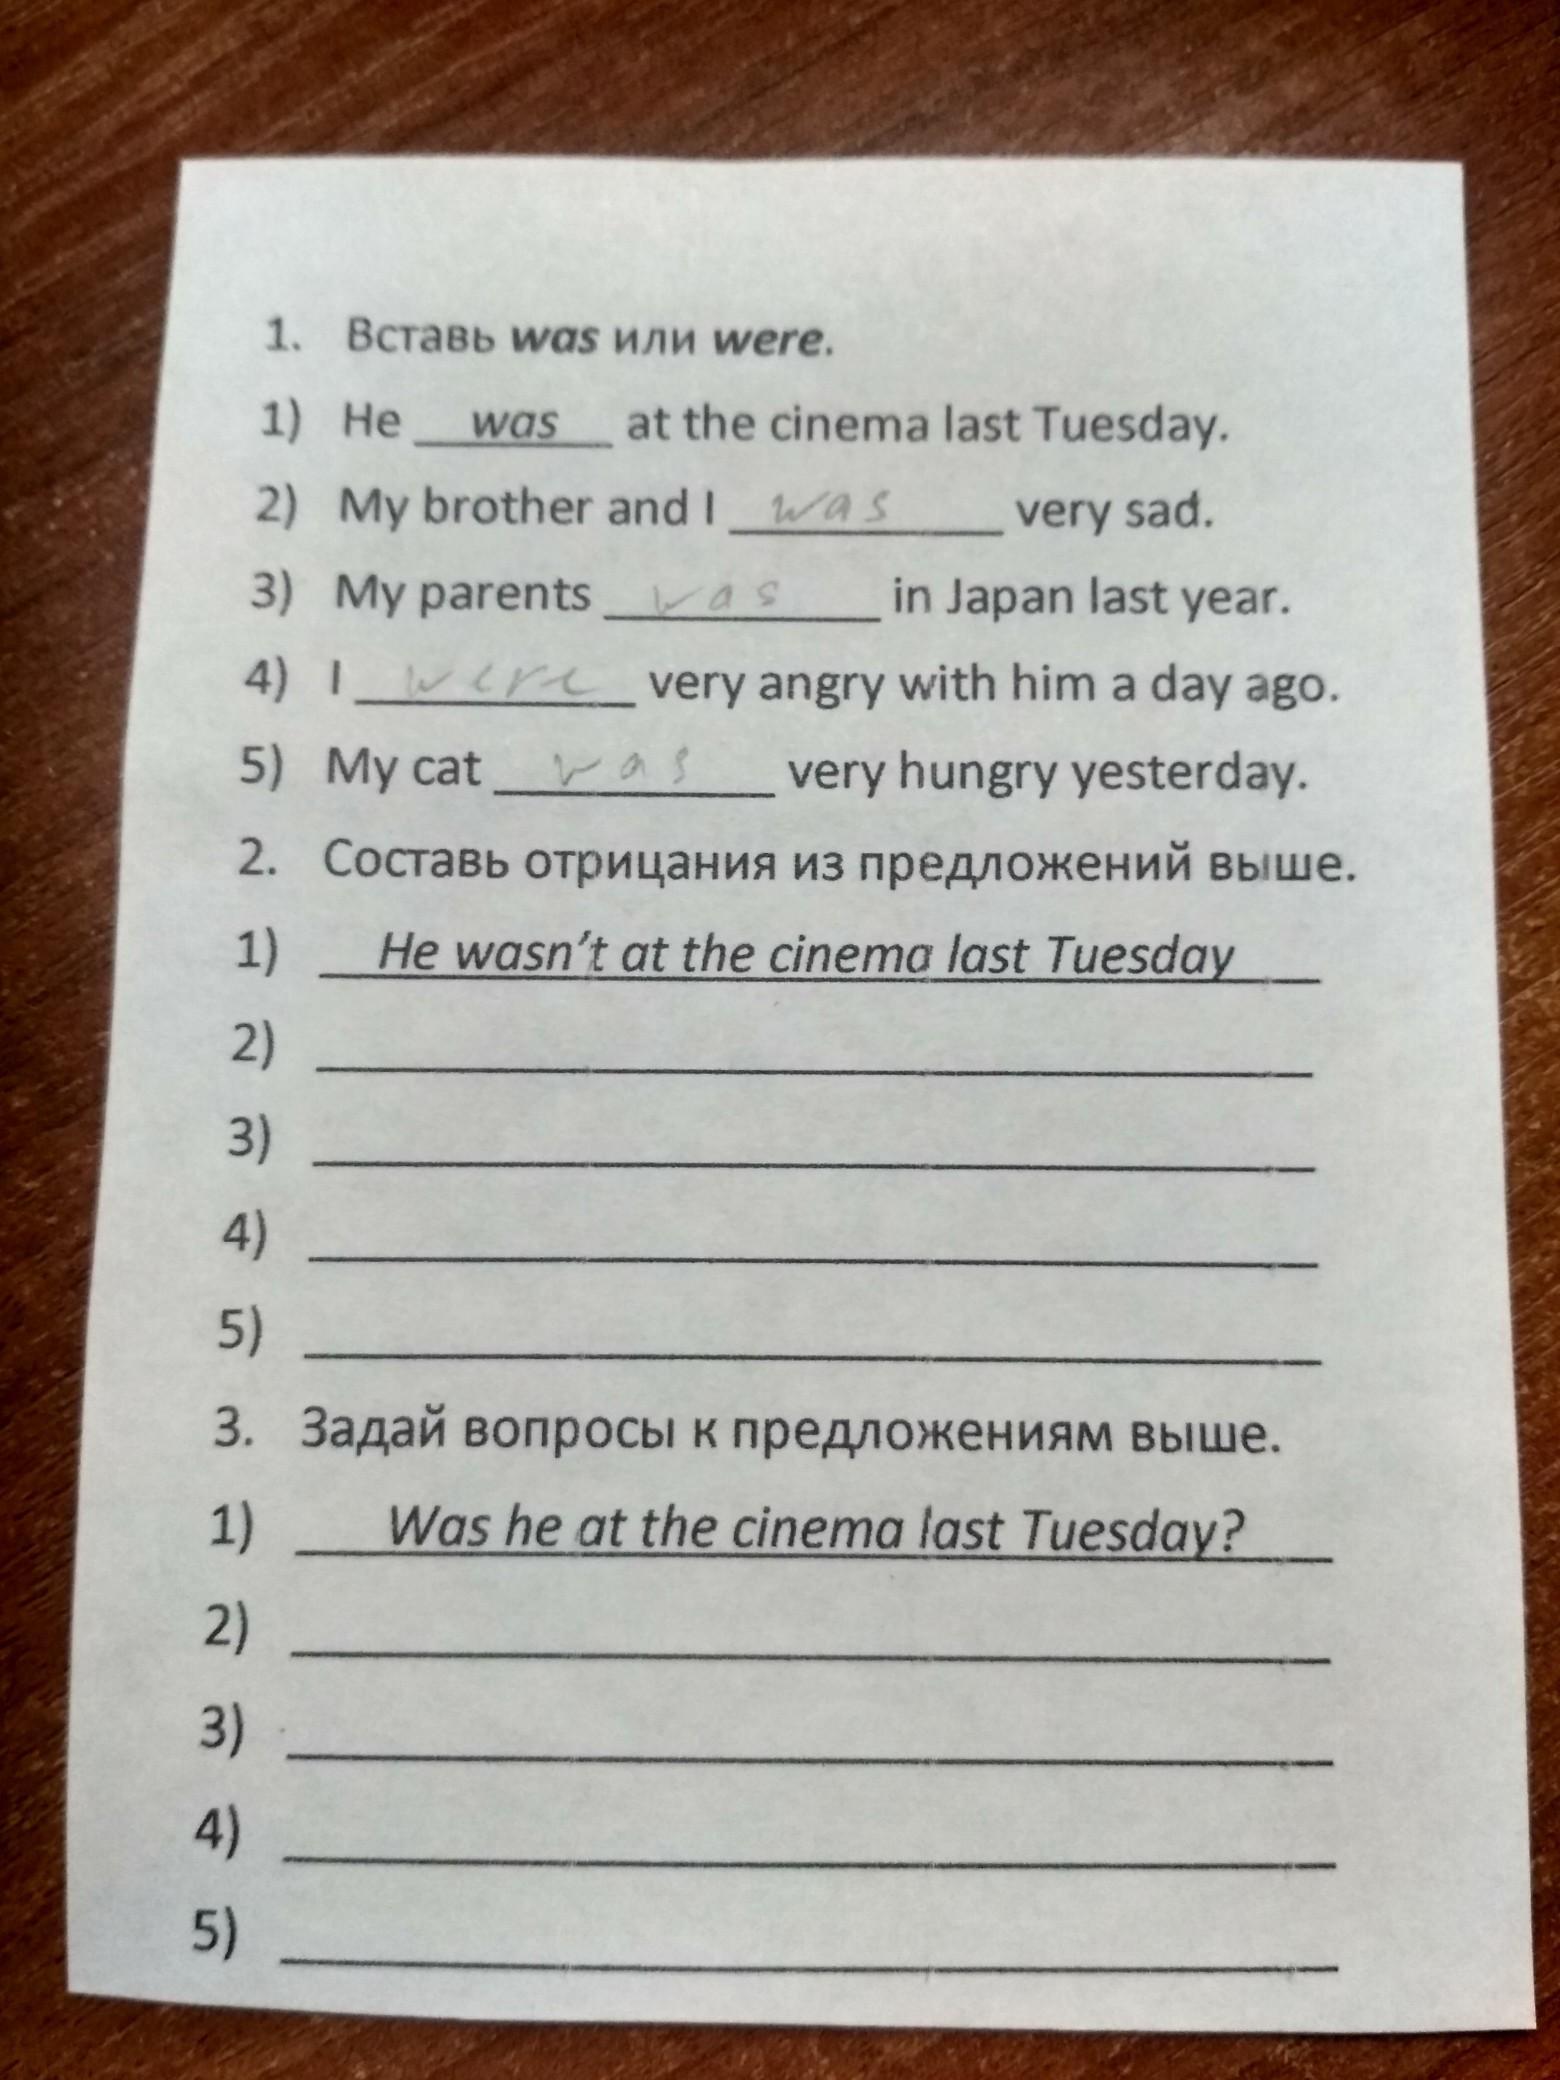 1. Вставь was или were.
1) He was at the cinema last Tuesday.
2) My brother and I was very sad.
3) My parents was in Japan last year.
4) I were very angry with him a day ago.
5) My cat was very hungry yesterday.
2. Составь отрицания из предложений выше.
1) He wasn't at the cinema last Tuesday
2)
3)
4)
5)
3. Задай вопросы к предложениям выше.
1) Was he at the cinema last Tuesday?
2)
3)
4)
5)